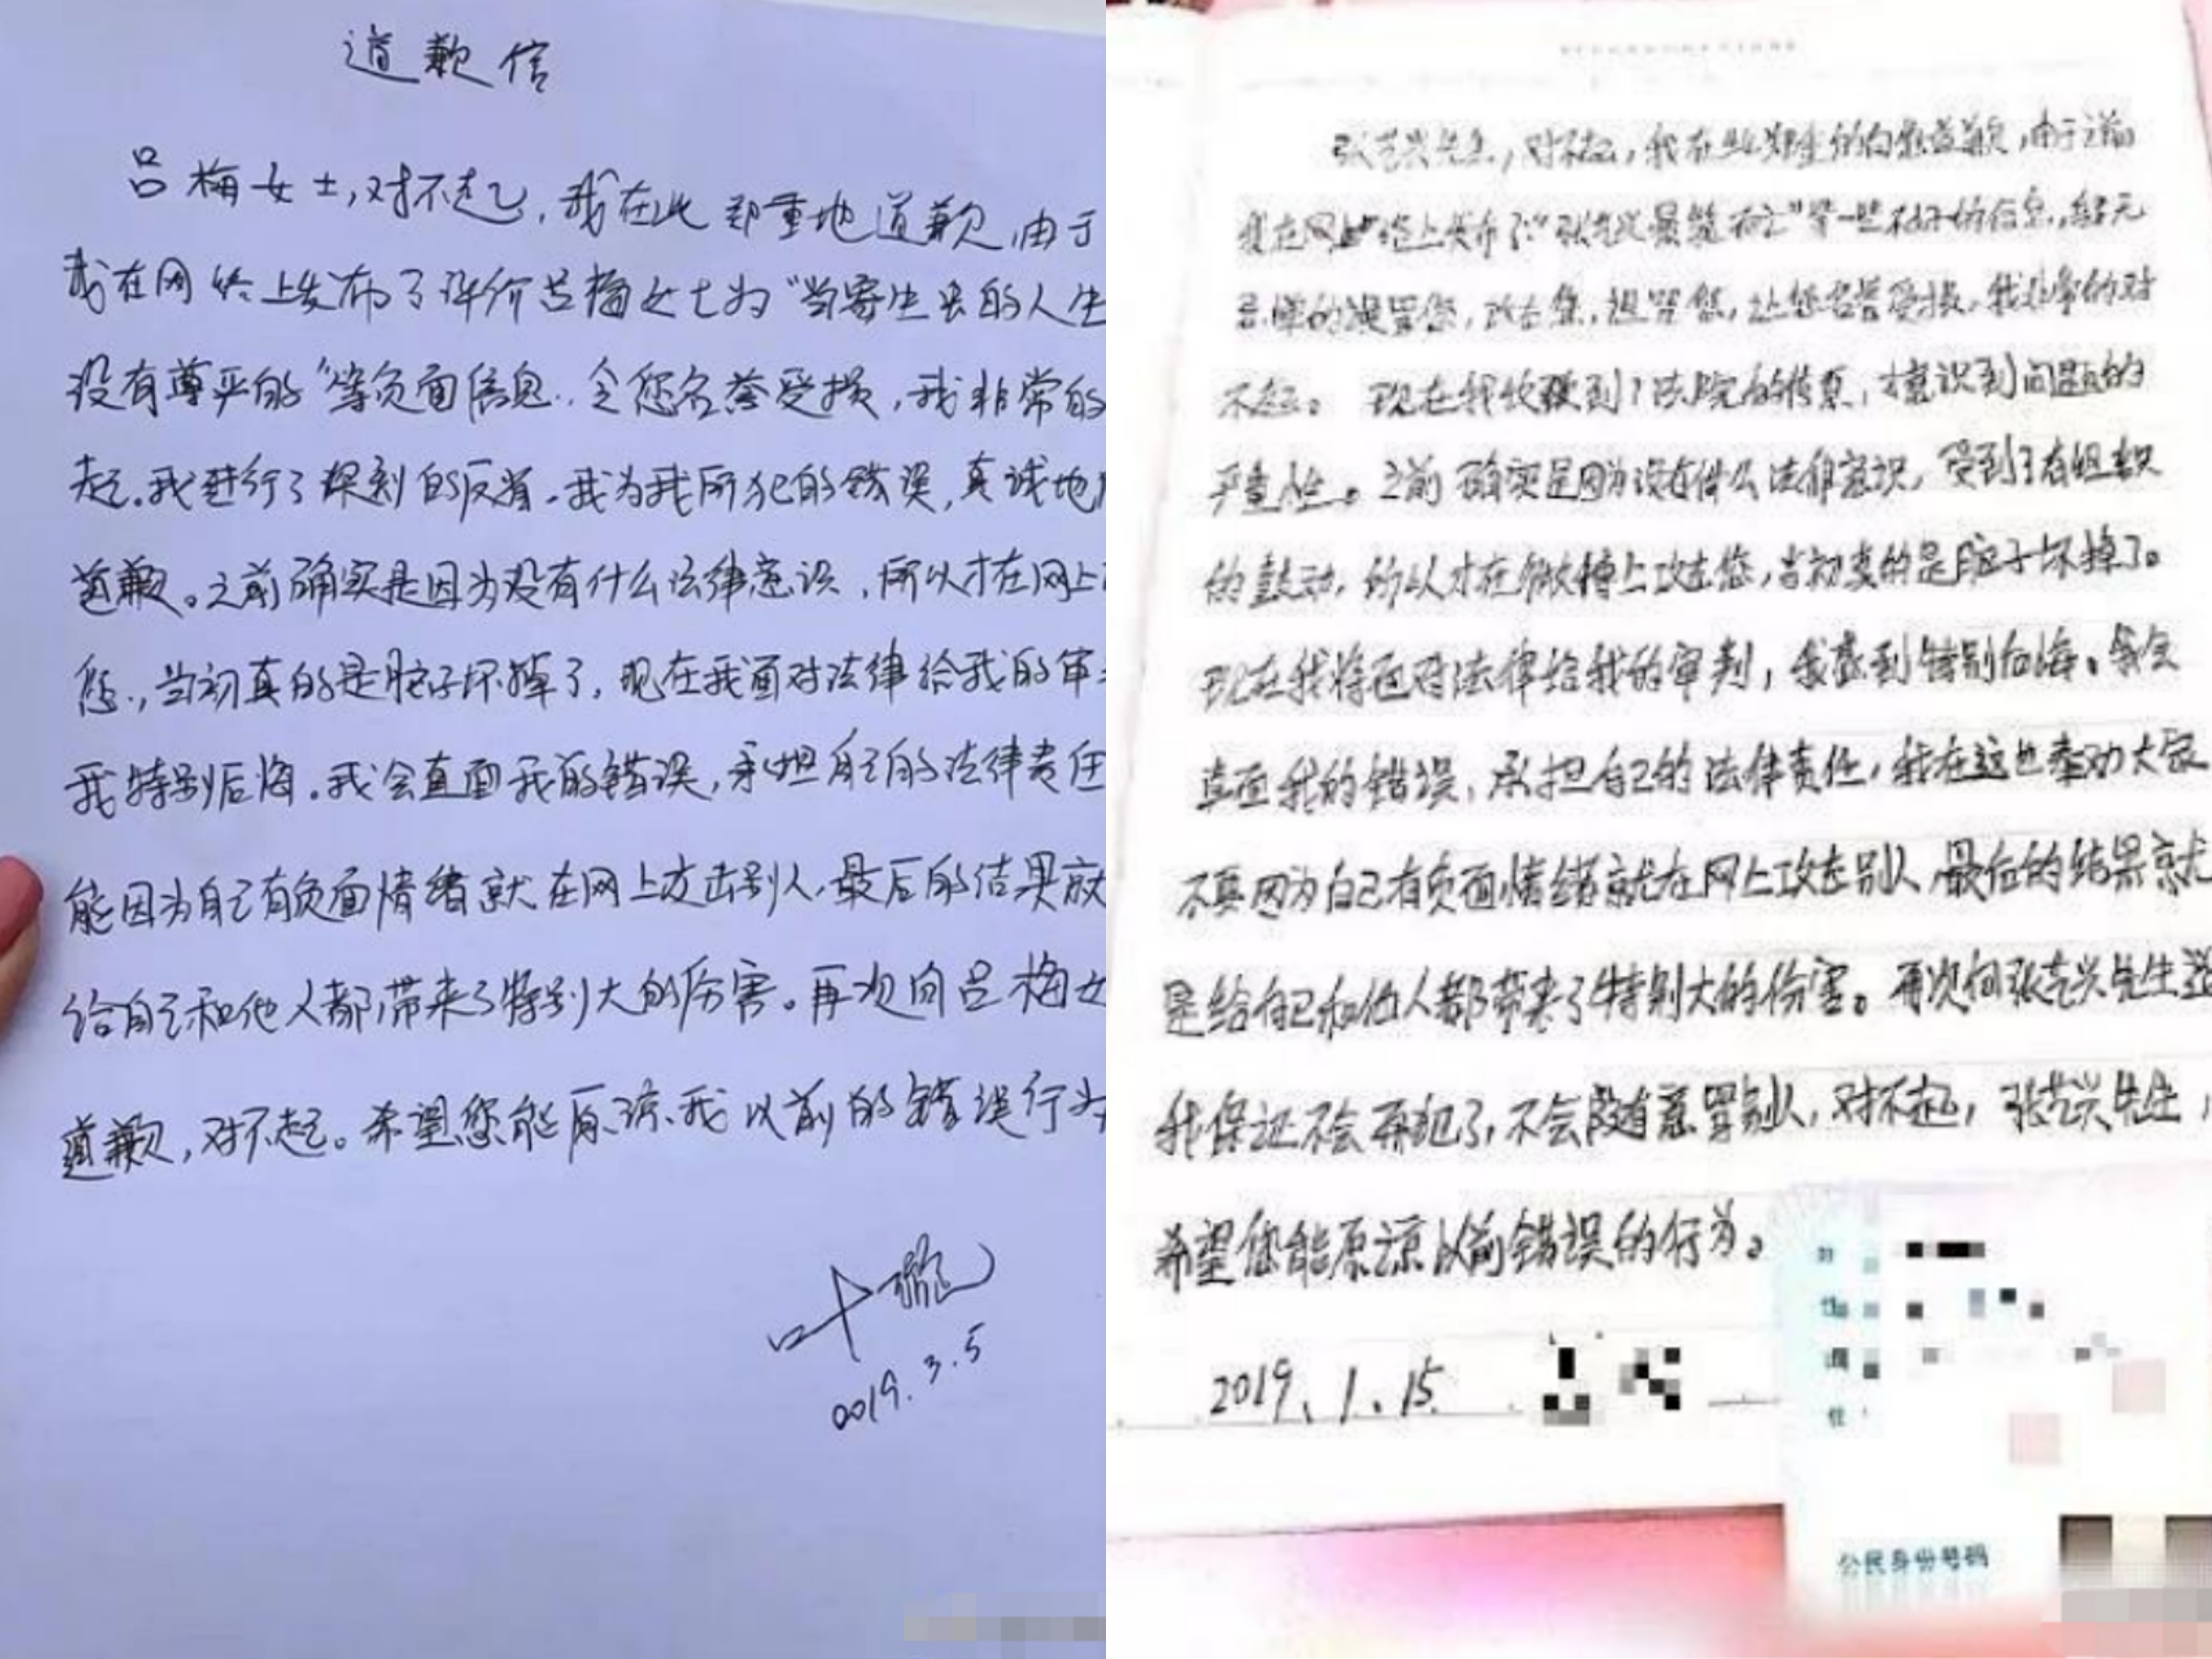 道歉信
吕梅女士,对不起,我在此郑重地道歉,由于
我在网络上发布了评价吕梅女士为“当寄生虫的人生
没有尊严的”等负面信息.,令您名誉受损,我非常的
起.我进行了深刻的反省.我为我所犯的错误,真诚地
道歉。之前确实是因为没有什么法律意识,所以才在网上
您.,当初真的是脑子坏掉了,现在我面对法律给我的审
我特别后悔.我会直面我的错误,承担自己的法律责任
能因为自己有负面情绪就在网上攻击别人.最后的结果就
给自己和他人都带来了特别大的厉害。再次向吕梅女
道歉,对不起。希望您能原谅我以前的错误行为
叶璇
2019.3.5
张艺兴先生,对不起,我在此郑重的向您道歉,由于之前
我在网络上发布了“张艺兴暴毙而亡”等一些不好的信息,给无
的谩骂您,攻击您,诅咒您,让您名誉受损,我非常的对
不起。现在我收到了法院的传票,才意识到问题的
严重性。之前确实是因为没有什么法律意识,受到了有组织
的鼓动,所以才在微博上攻击您,当初真的是脑子坏掉了。
现在我将面对法律给我的审判,我感到特别后悔。我会
直面我的错误,承担自己的法律责任,我在这也奉劝大家
不要因为自己有负面情绪就在网上攻击别人,最后的结果就
是给自己和他人都带来了特别大的伤害。再次向张艺兴先生道
我保证不会再犯了,不会没有意骂别人,对不起,张艺兴先生,
希望您能原谅以前错误的行为。
2019、1.15
公民身份号码